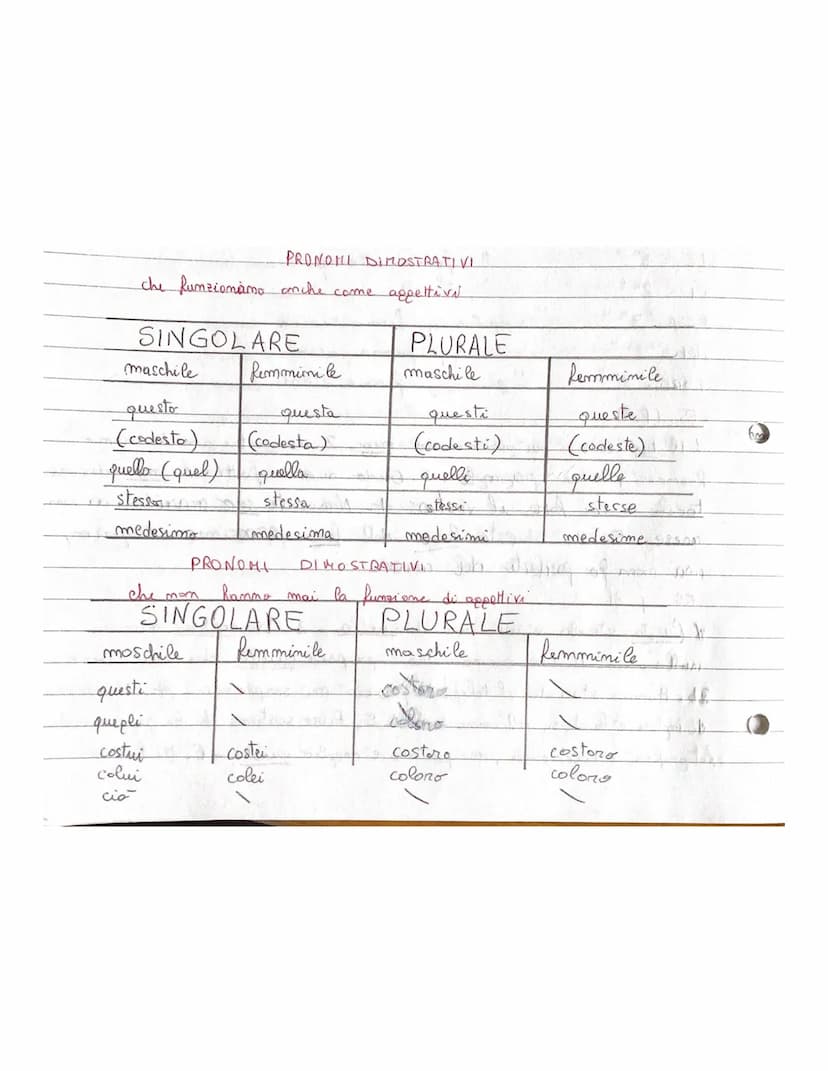 PRONOMI DIMOSTRATIVI
che funzionano anche come aggettivi
SINGOLARE PLURALE
maschile femminile maschile femminile
questo questa questi queste
(codesto) (codesta) (codesti) (codeste)
quello (quel) quella quelli quelle
stesso stessa stessi stesse
medesimo medesima medesimi medesime
PRONOMI DIMOSTRATIVI
che non hanno mai la funzione di aggettivi
SINGOLARE PLURALE
maschile femminile maschile femminile
questi \ costoro \
quegli \ coloro \
costui costei costoro costoro
colui colei coloro coloro
ciò \ \ \